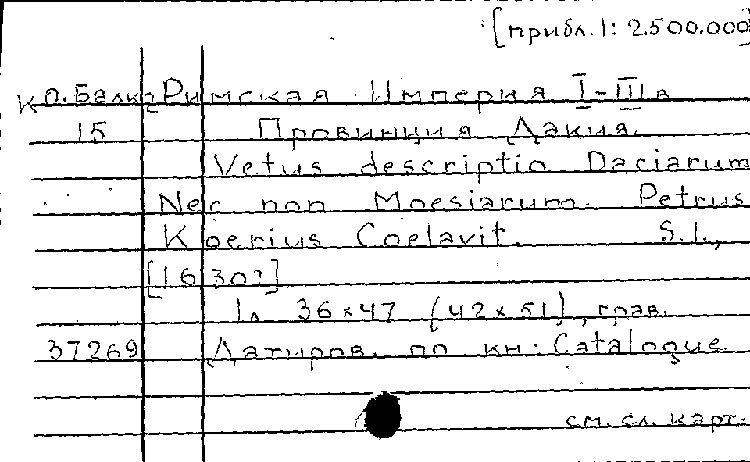 [прибл. 1: 2.500.000]
К О. Балк2 Римская Империя I-III в
15 Провинция Дакия.
Vetus descriptio Daciarum
Nec non Moesiarum. Petrus
Koerius Coelavit. S.l.,
[1630?]
1л 36×47 (42×51), грав.
37269 Датиров. по кн: Catalogue
см. сл. карт.